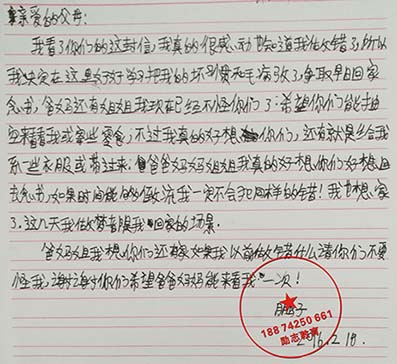 亲爱的父母:
我看了你们的这封信,我真的很感动也知道我做错了,所以
我决定在这里好好学习把我的坏习惯和毛病改了,争取早日回家
念书,爸妈还有姐姐我现在已经不怪你们了,希望你们能抽
空来看看我或寄些零食,不过我真的好想你们,还有就是给我
一些衣服或带过来,爸爸妈妈姐姐我真的好想你们好想回
去念书,如果时间能倒流我一定不会犯同样的错!我也想家
了.这几天我做梦都是我回家的场景.
爸妈姐我想你们还有家如果我以前做错什么请你们不要
怪我,谢谢你们希望爸爸妈妈能来看我一次!
子
18874250661
励志教育
2016.2.18.